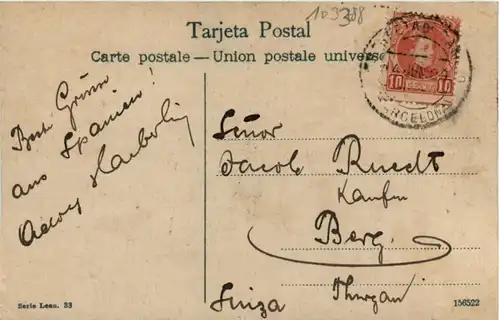 103388
Tarjeta Postal
Carte postale — Union postale universe
10 CENT. 10
BARCELONA
Best Grüsse
aus Spanien!
Haeberlin
Señor
Jacob Ruedt
Kaufm
Berg.
Suiza Thurgau
Serie Leon. 33
156522